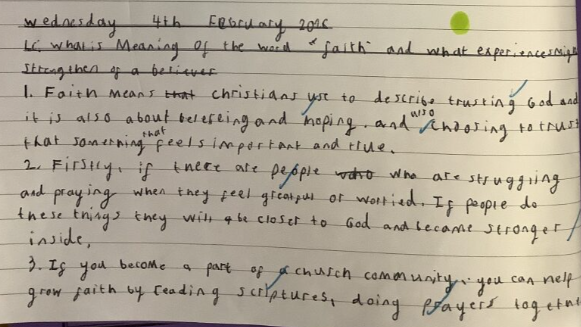 Wednesday 4th February 2026
LC what is Meaning Of the word "faith" and what experiences
Strengthen of a believer
1. Faith means that christians use to describe trusting God and
it is also about beleiving and hoping. and also choosing to trust
that something that feels important and true.
2. Firstly, if there are people who who are struggling
and praying when they feel greatful or worried. If people do
these things they will be closer to God and became stronger
inside,
3. If you become a part of a church community. you can help
grow faith by reading scriptures, doing prayers